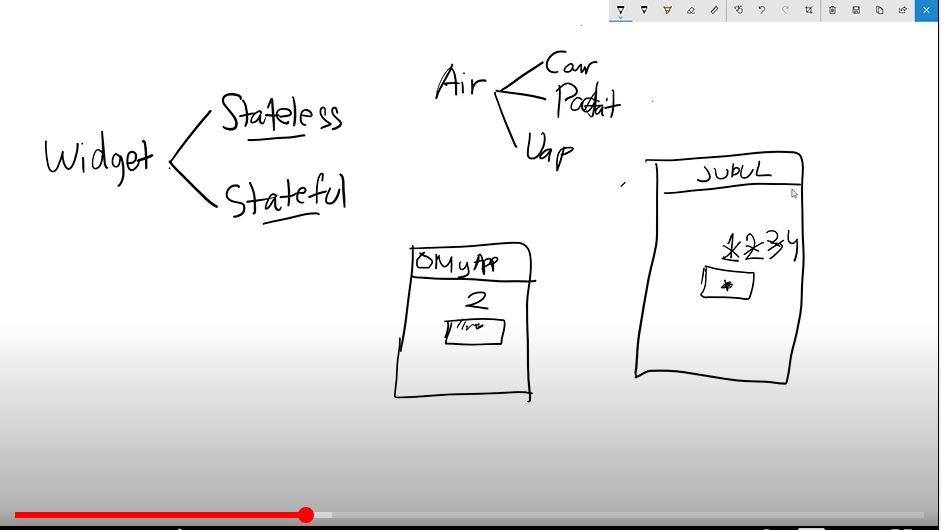 Widget
Stateless
Stateful
Air
Cair
Uap
MyApp
2
JUDUL
1 2 3 4